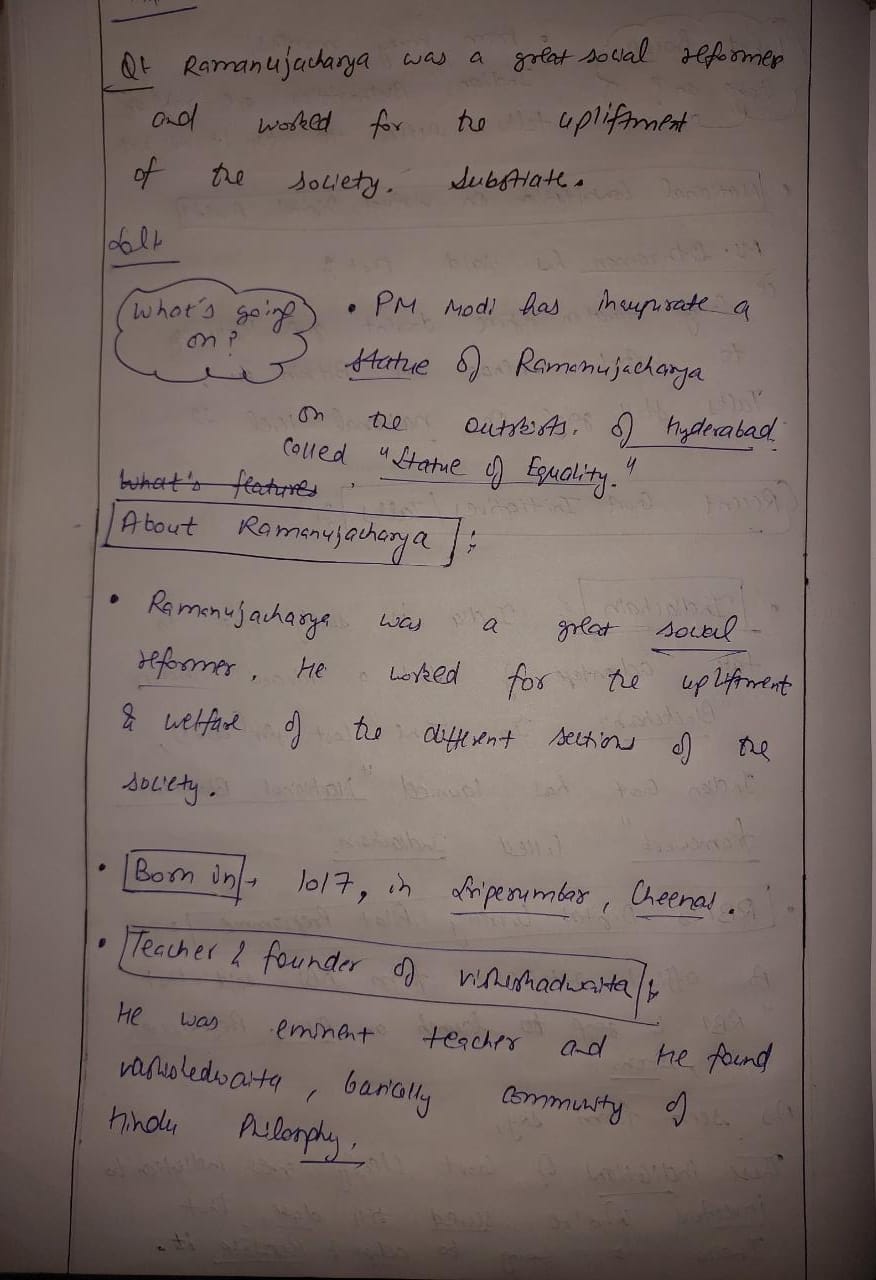 Q↳ Ramanujacharya was a great social reformer
and worked for the upliftment
of the society. Substiate.
Sol↳
What's going on?
• PM Modi has inaupirate a
Statue of Ramanujacharya
on the outskirts. of Hyderabad.
Called "Statue of Equality."
What's features
About Ramanujacharya :
• Ramanujacharya was a great social
reformer. He worked for the upliftment
& welfare of the different sections of the
society.
• Born in → 1017, in Sriperumbar, Cheenai.
• Teacher & founder of visheshadwaita
He was eminent teacher and He found
, basically community of
Hindu Philosphy.